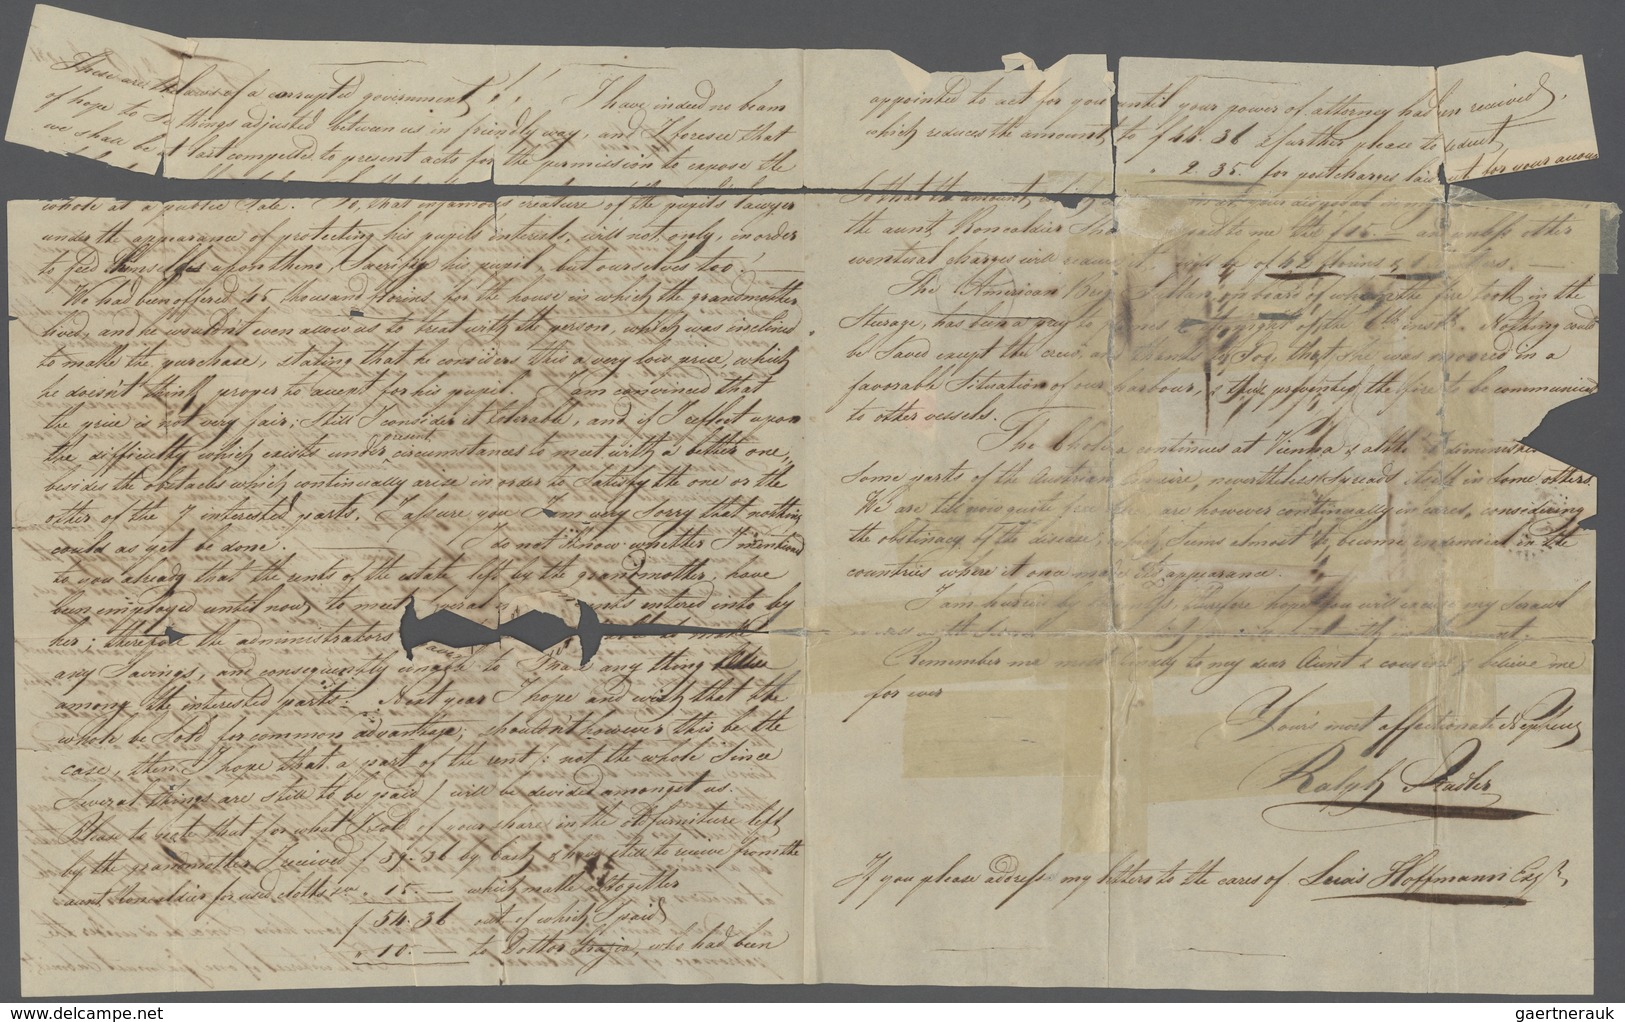 These are the laws of a corrupted government!! I have indeed no beam
of hope to see things adjusted between us in friendly way, and I foresee that
we shall be at last compelled to present acts for the permission to expose the
whole at a public Sale. So, that infamous creature of the pupil's lawyer
under the appearance of protecting his pupils interest, will not only, in order
to feed themselves upon them, Sacrify his pupil, but ourselves too! —
We had been offered 45 thousand florins for the house in which the grandmother
lived, and he wouldn't even allow us to treat with the person, which was inclined
to make the purchase, stating that he considers this a very low price, which
he doesn't think proper to accept for his pupil. I am convinced that
the price is not very fair; still I consider it tolerable, and if I reflect upon
the difficulty which exists under present circumstances to meet with a better one,
besides the obstacles which continually arise in order to Satisfy the one or the
other of the 7 interested parts, I assure you I am very sorry that nothing
could as yet be done. — I do not know whether I mentioned
to you already that the rents of the estate left by the grandmother, have
been employed until now, to meet several entered into by
her; therefore the administrators to make
any Savings, and consequently to any thing
among the interested parts. Next year I hope and wish that the
whole be Sold for common advantage; shouldn't however this be the
case, then I hope that a part of the rent /: not the whole Since
Several things are still to be paid / will be divided amongst us.
Please to note that for what I sold of your share in the old furniture left
by the grandmother I received f 39.36 by cash & have still to receive from the
aunt Roncaldier for used clothes " 15 — which make altogether
f 54.36 out of which I paid
" 10. — to Dottor Grazia, who had been
appointed to act for you until your power of attorney had been received,
which reduces the amount to f 44.36 & further please to deduct
" 2.35. for postcharges laid out for your account
So that the amount at your disposal in my
the aunt Roncaldier Should paid to me the f 15 — and unless other
eventual charges will be of 42 florins &
The American Brig on board of whom the fire took in the
Steerage, has been a prey to flames in the night of the 6th inst. Nothing could
be Saved except the crew, and thanks by God, that She was moored in a
favorable Situation of our harbour, & thus prevented the fire to be communicated
to other vessels.
The Cholera continues at Vienna & altho it diminishes in
Some parts of the Austrian Empire, nevertheless spreads itself in Some others.
We are till now quite free are however continually in cares, considering
the obstinacy of the disease, which Seems almost to become endemical in the
countries where it once made its appearance.
I am hurried by therefore hope you will excuse my Scrawl
Remember me most kindly to my dear Aunt & cousins & believe me
for ever
Your's most affectionate Nephew
Ralph Sadler
If you please address my letters to the cares of Louis Hoffmann Esqr.
gaertnerauk